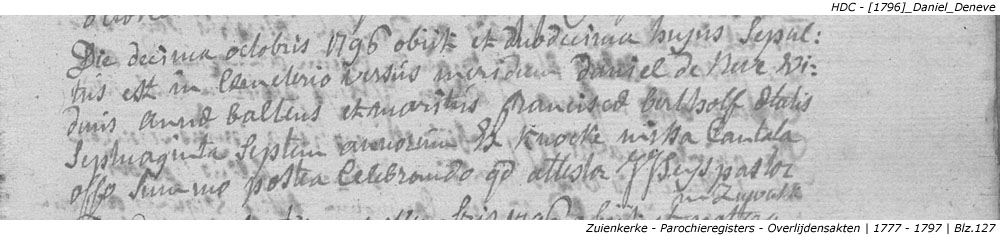 HDC - [1796]_Daniel_Deneve
Die decima octobris 1796 obiit et duodecima hujus Sepul:
tus est in Cemeterio versus meridiem daniel de Neve Vi:
duus annæ balleus et maritus franciscæ bertholf Ætatis
Septuaginta Septem annorum Ex Knocke missa Cantata
offo Summo postea Celebrando qd attestor JJ Seys pastor
in Zuyenk
1796 obiit
Zuienkerke - Parochieregisters - Overlijdensakten | 1777 - 1797 | Blz.127